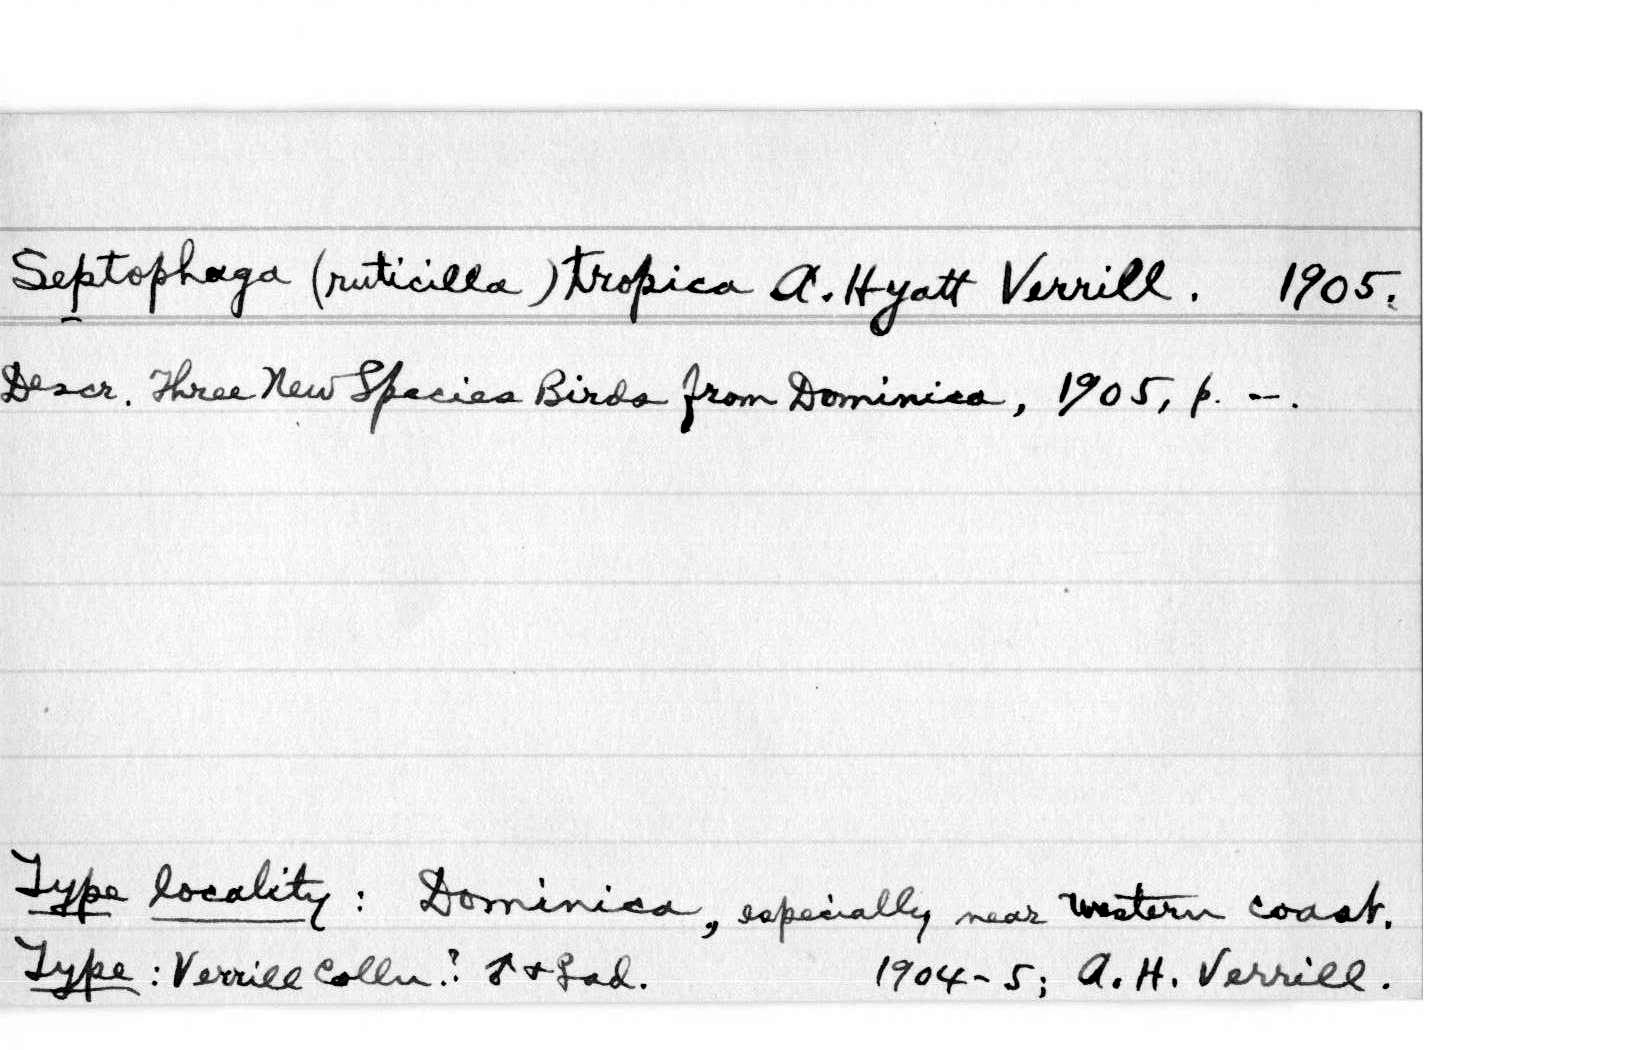 Septophaga (ruticilla) tropica A. Hyatt Verrill. 1905.
Descr. Three New Species Birds from Dominica, 1905, p. —.
Type locality: Dominica, especially near western coast.
Type: Verrill Colln.? ♂ + ♀ ad. 1904-5; A. H. Verrill.